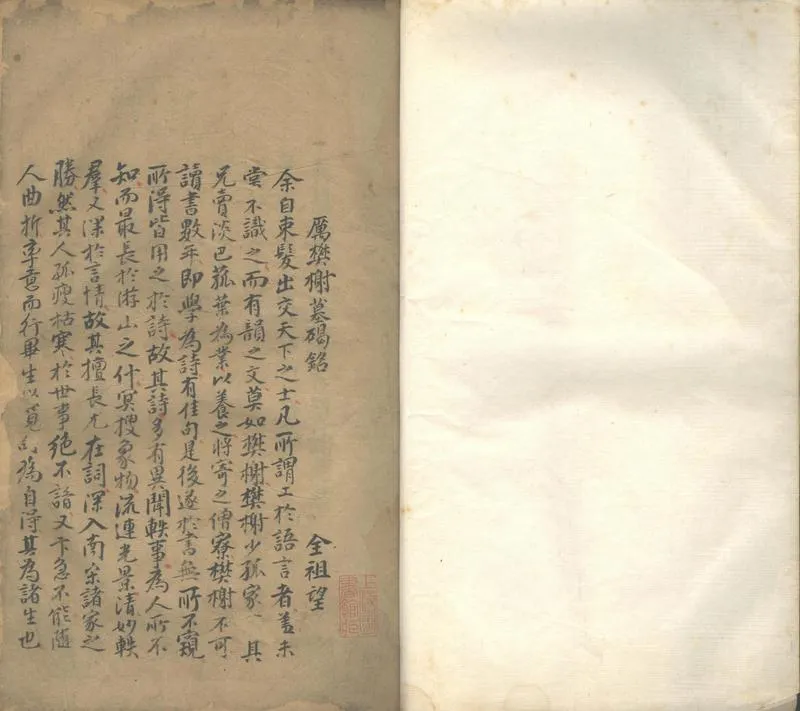 厲樊榭墓碣銘
全祖望
余自束髮出交天下之士凡所謂工於語言者蓋未
嘗不識之而有韻之文莫如樊榭樊榭少孤家丶其
兄賣淡巴菰葉為業以養之將寄之僧寮樊榭不可
讀書數年即學為詩有佳句是後遂於書無所不窺
所得皆用之於詩故其詩多有異聞軼事為人所不
知而最長於游山之什冥搜象物流連光景清妙軼
羣又深於言情故其擅長尤在詞深入南宋諸家之
勝然其人孤瘦枯寒於世事絶不諳又卞急不能隨
人曲折率意而行畢生以覓句為自得其為諸生也